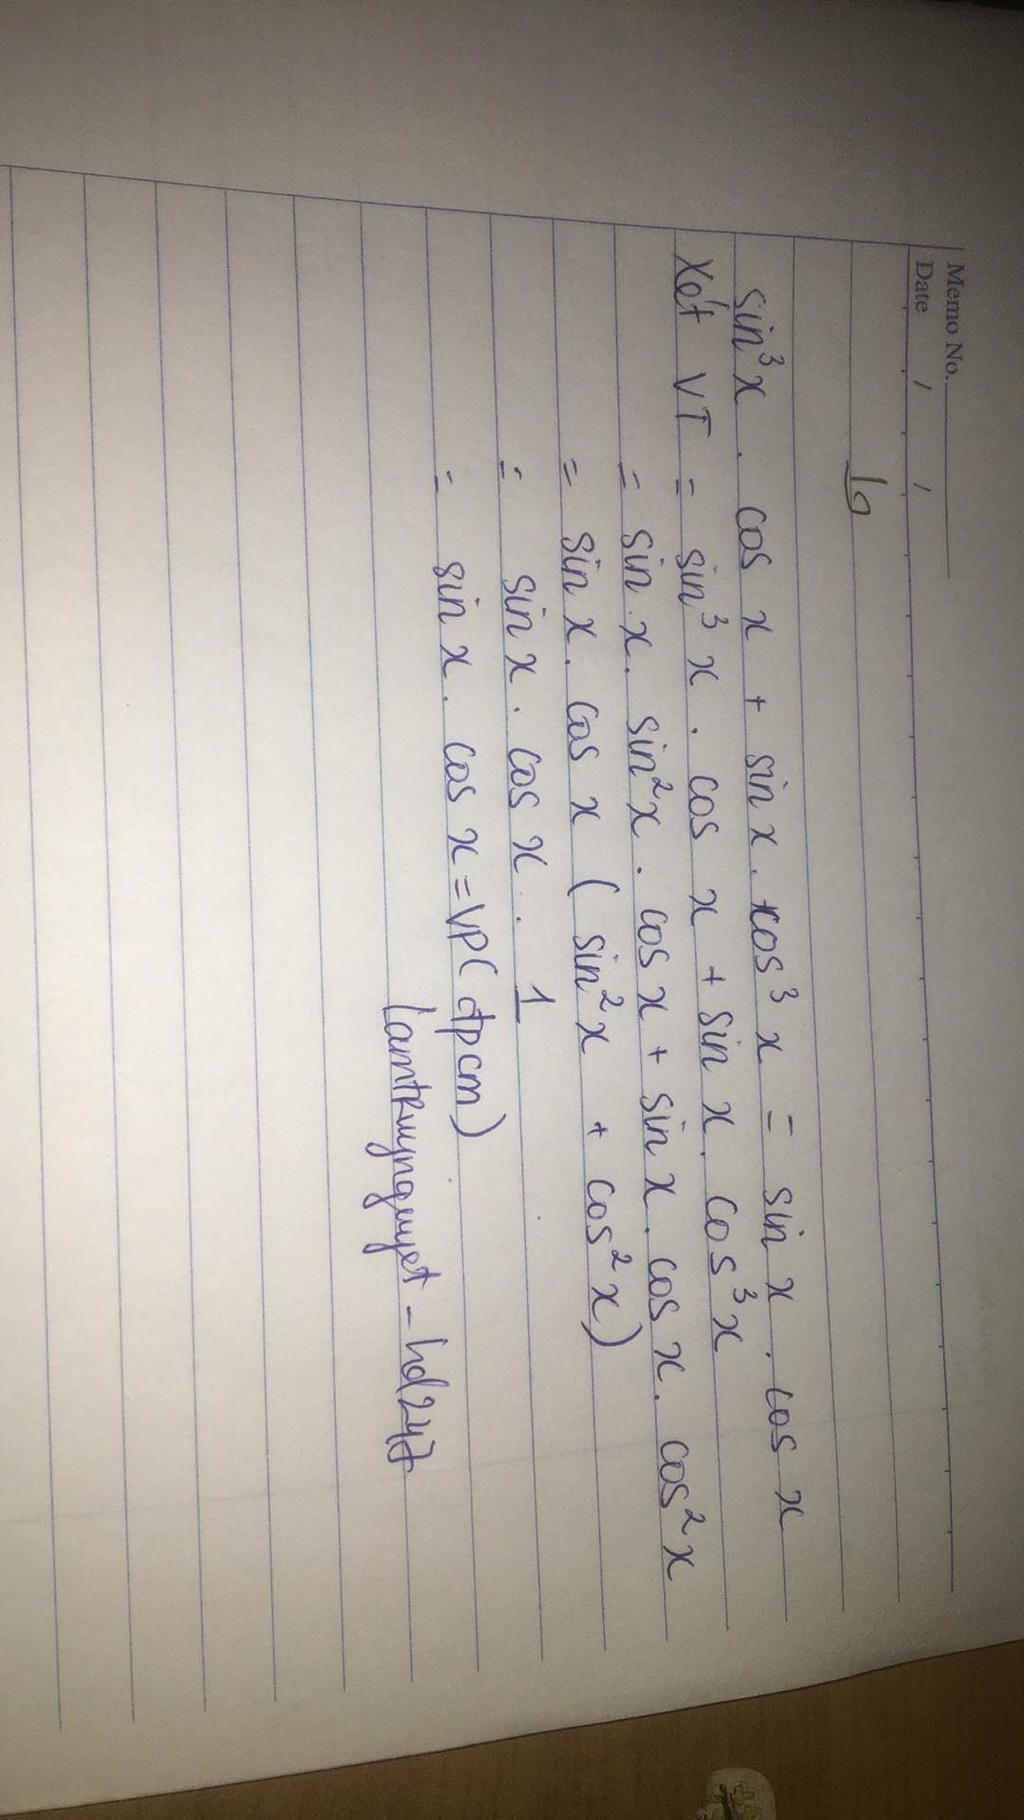 Memo No.
Date / /
sin³x . cos x + sin x . cos³x = sin x . cos x
Xét VT = sin³x . cos x + sin x . cos³x
= sin x . sin²x . cos x + sin x . cos x . cos²x
= sin x . cos x ( sin²x + cos²x )
= sin x . cos x . 1
= sin x . cos x = VP ( đpcm )
lamtruynguyet - hd247